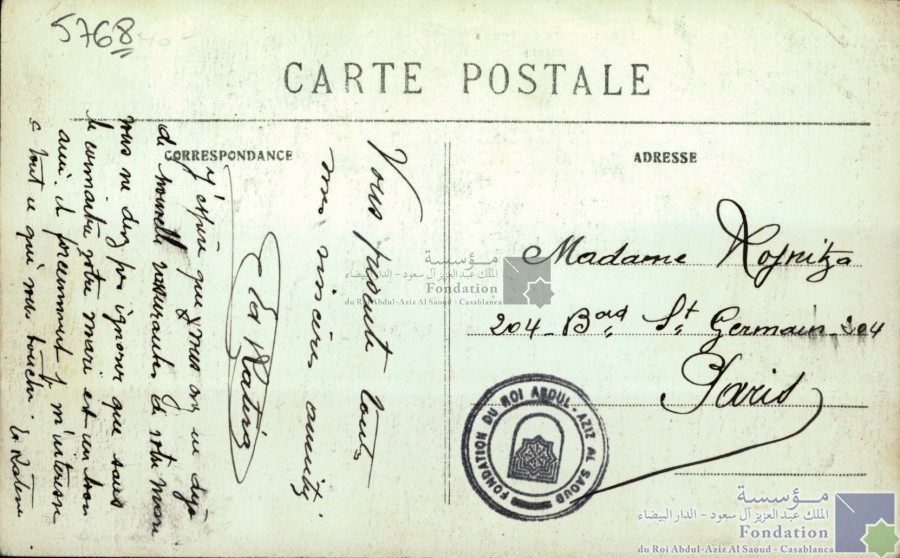 5768
CARTE POSTALE
CORRESPONDANCE
ADRESSE
Vous présente toutes
mes sincères amitiés
J'espère que vous avez déjà
de nouvelles rassurantes de votre mari
vous ne devez pas ignorer que sans
le connaître votre mari est un bon
ami et forcément je m'intéresse
à tout ce qui vous touche.
Madame
204 - Bard St Germain 204
Paris
FONDATION DU ROI ABDUL-AZIZ AL SAOUD
مؤسسة
الملك عبد العزيز آل سعود - الدار البيضاء
Fondation
du Roi Abdul-Aziz Al Saoud - Casablanca
مؤسسة
الملك عبد العزيز آل سعود - الدار البيضاء
Fondation
du Roi Abdul-Aziz Al Saoud - Casablanca